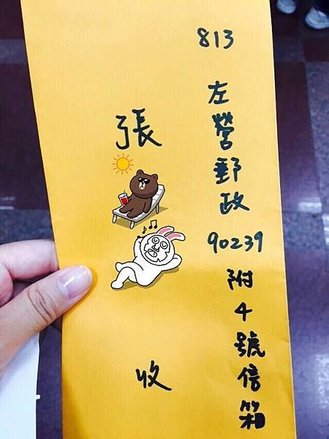 813
左營郵政90239附4號信箱
張
收